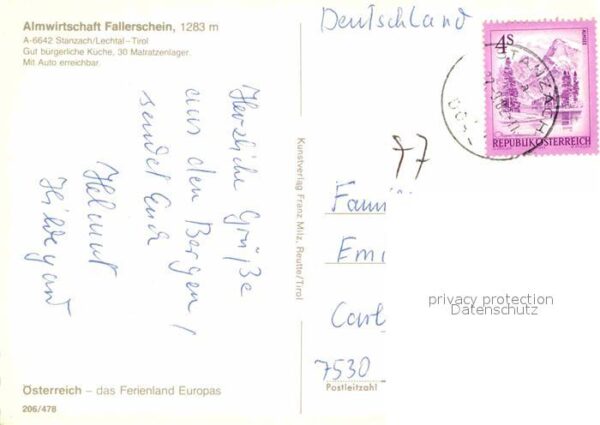 Almwirtschaft Fallerschein, 1283 m
A-6642 Stanzach/Lechtal–Tirol
Gut bürgerliche Küche, 30 Matratzenlager.
Mit Auto erreichbar.
Herzliche Grüße
aus den Bergen,
sendet Euch
Helmut
Hildegard
Österreich – das Ferienland Europas
206/478
Kunstverlag Franz Milz, Reutte/Tirol
Deutschland
4S
ALMSEE
REPUBLIK ÖSTERREICH
STANZACH
77
Fami
Emi
Carl
7530
Postleitzahl
privacy protection
Datenschutz